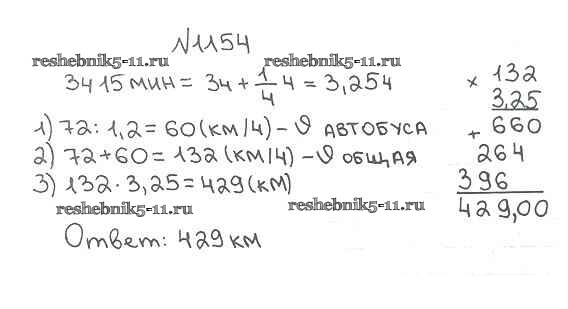 №1154
reshebnik5-11.ru reshebnik5-11.ru
3ч 15 мин = 3ч + 1/4 ч = 3,25ч
1) 72 : 1,2 = 60 (км/ч) – υ автобуса
2) 72 + 60 = 132 (км/ч) – υ общая
3) 132 · 3,25 = 429 (км)
reshebnik5-11.ru reshebnik5-11.ru
Ответ: 429 км
× 132
3,25
+ 660
264
396
429,00